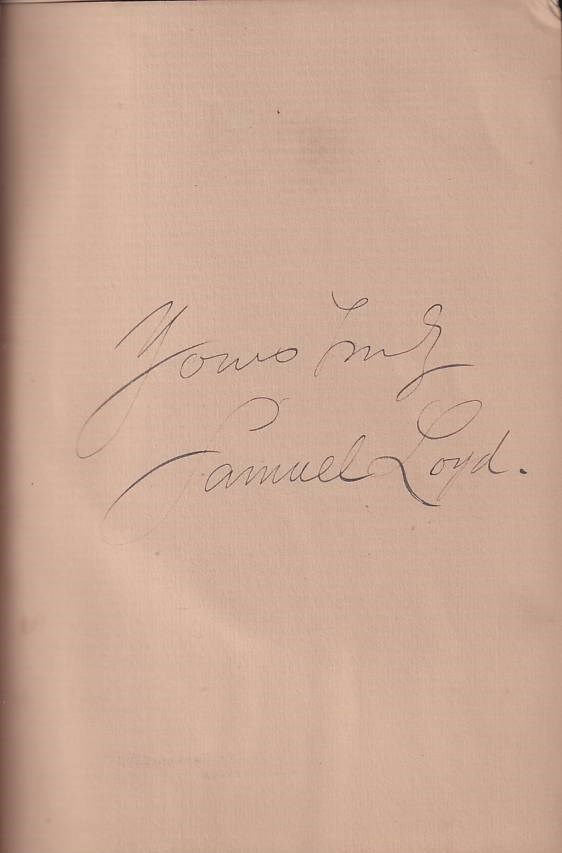 Yours Truly
Samuel Loyd.